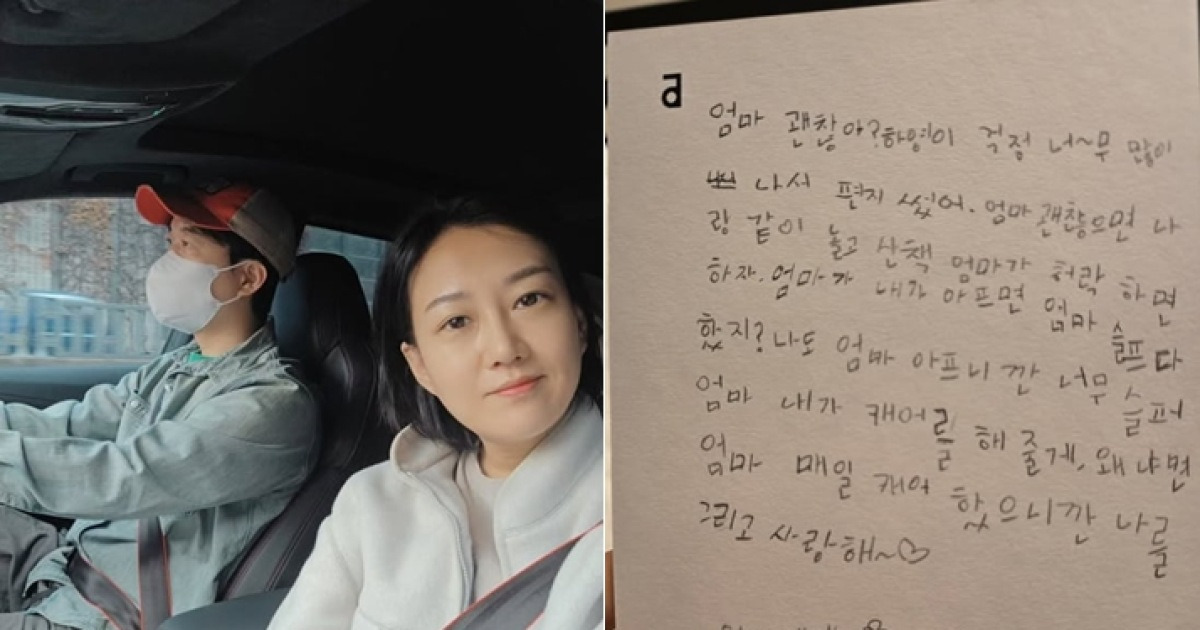 a
엄마 괜찮아? 하영이 걱정 너~무 많이
나서 편지 썼어. 엄마 괜찮으면 나
랑 같이 놀고 산책 엄마가 허락 하면
하자. 엄마가 내가 아프면 엄마 슬프다
했지? 나도 엄마 아프니깐 너무 슬퍼
엄마 내가 캐어를 해 줄게. 왜냐면
엄마 매일 캐어 했으니깐 나를
그리고 사랑해~♡